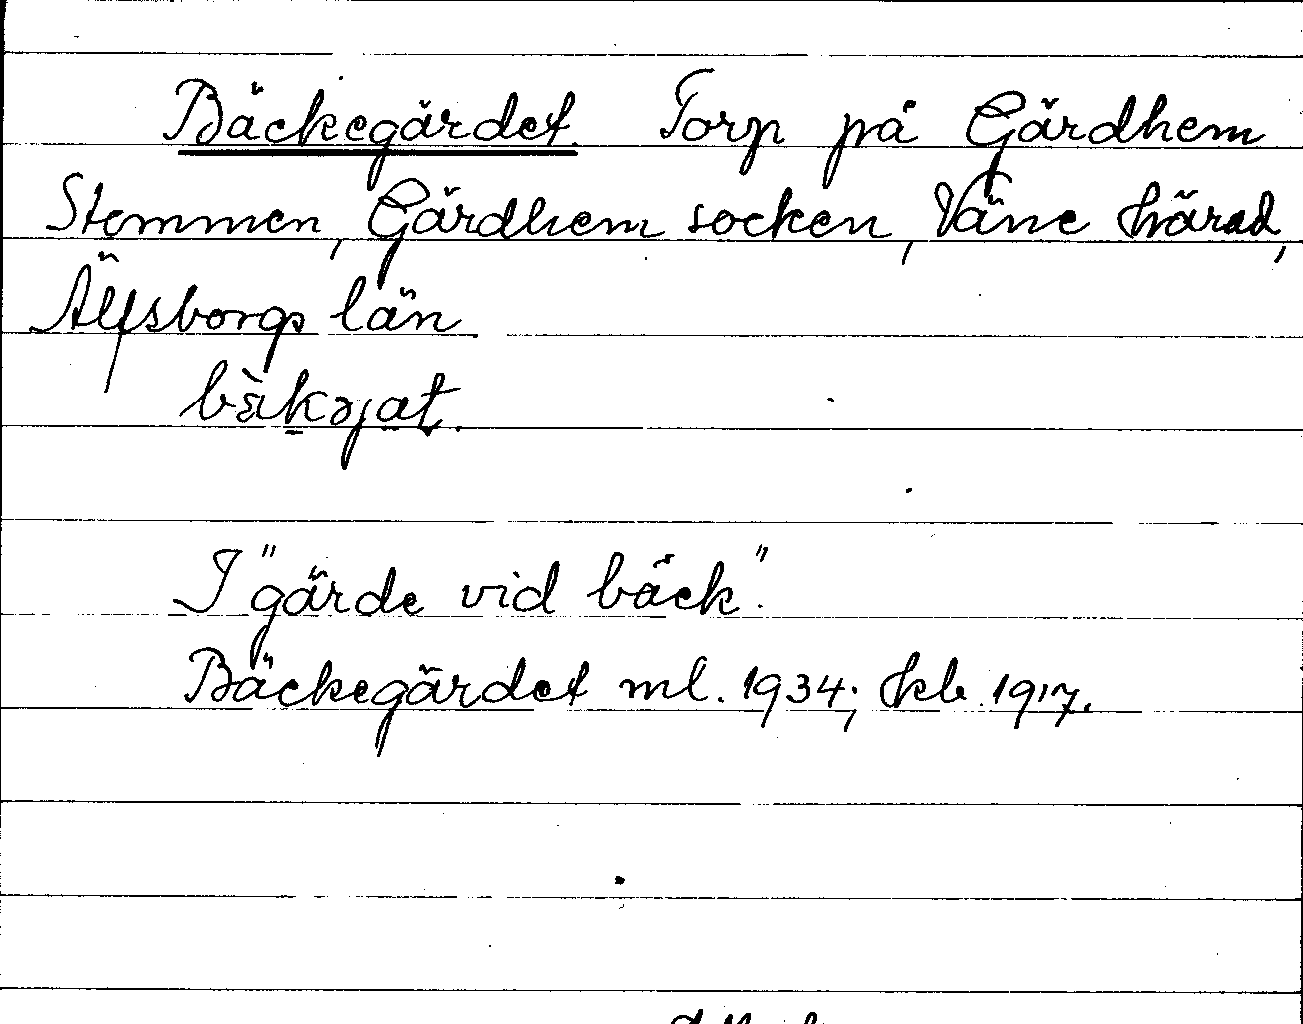 Bäckegärdet. Torp på Gärdhem
Stommen, Gärdhem socken, Väne härad,
Älfsborgs län

I "gärde vid bäck".
Bäckegärdet ml. 1934; hkb. 1917.